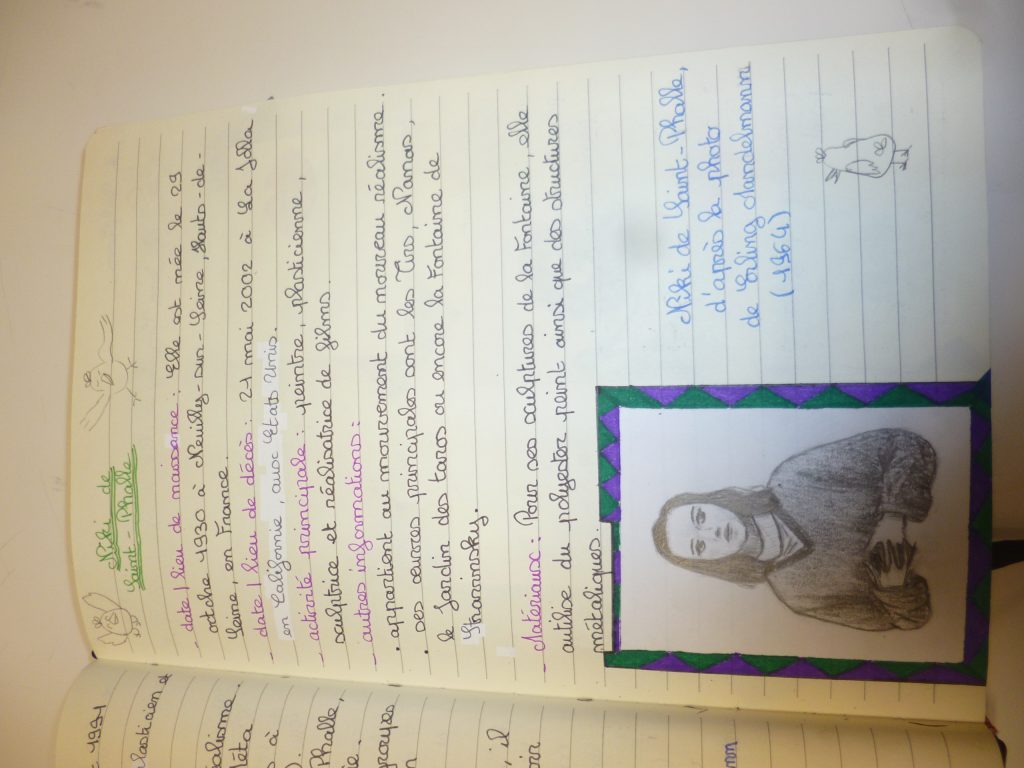 Niki de
Saint-Phalle
- date/lieu de naissance : Elle est née le 29
octobre 1930 à Neuilly-sur-Seine, Hauts-de-
Seine, en France.
- date/lieu de décès : 21 mai 2002 à La Jolla
en Californie, aux Etats Unis.
- activité principale : peintre, plasticienne,
sculptrice et réalisatrice de films.
- autres informations :
• appartient au mouvement du nouveau réalisme.
• ses œuvres principales sont les Tirs, Nanas,
le Jardin des tarots ou encore la Fontaine de
Stravinsky.
- Matériaux : Pour ses sculptures de la Fontaine, elle
utilise du polyester peint ainsi que des structures
métaliques.
Niki de Saint-Phalle,
d'après la photo
de Erling Mandelmann
(1964)
= 1991
plasticien
éalisme
Méta
s à
Phalle,
ie.
groupes
n
, il
oir
nn